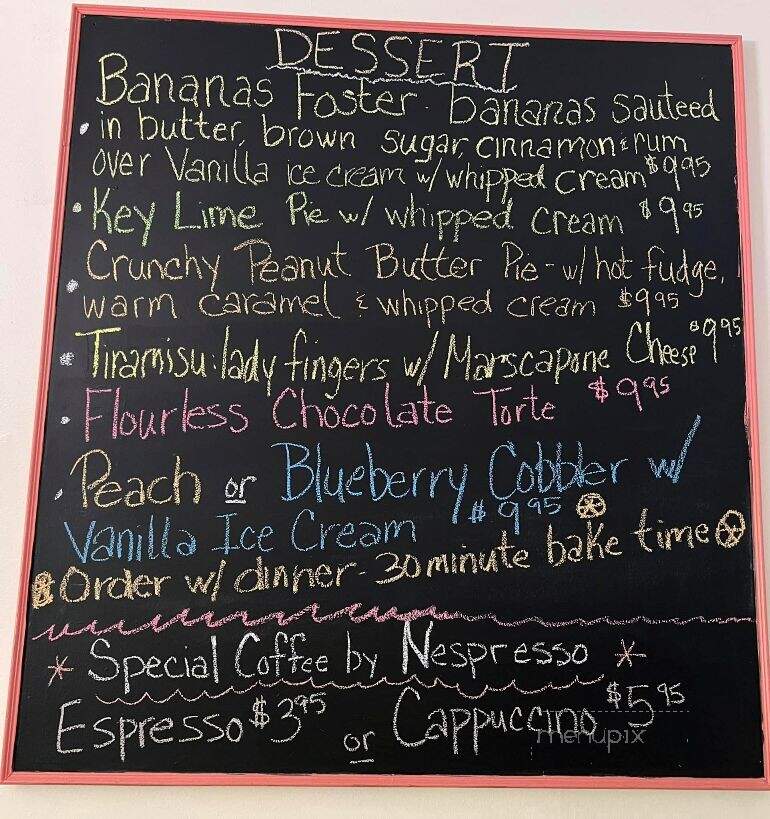 DESSERT
Bananas Foster - bananas sauteed
in butter, brown sugar, cinnamon & rum
over Vanilla ice cream w/ whipped cream $9.95
• Key Lime Pie w/ whipped cream $9.95
Crunchy Peanut Butter Pie - w/ hot fudge,
• warm caramel & whipped cream $9.95
• Tiramisu: lady fingers w/ Marscapone Cheese $9.95
• Flourless Chocolate Torte $9.95
• Peach or Blueberry Cobbler w/
Vanilla Ice Cream $9.95
Order w/ dinner - 30 minute bake time
* Special Coffee by Nespresso *
Espresso $3.95 or Cappuccino $5.95
menupix